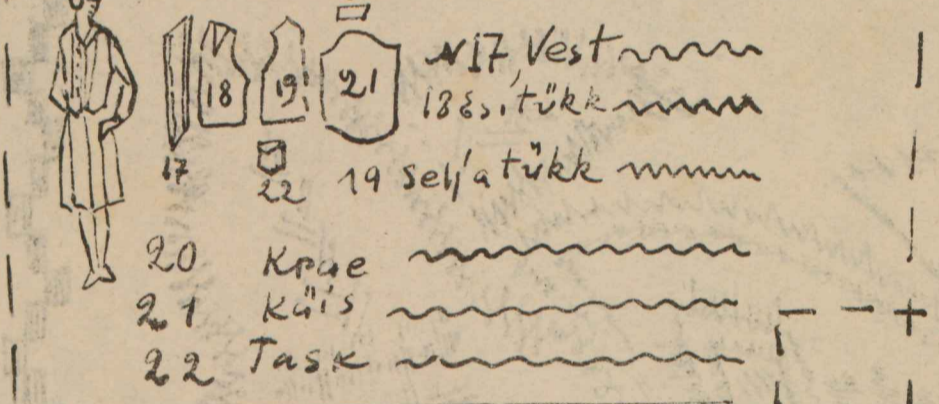 18 19 21
N17, Vest
18 Esitükk
17 22 19 Seljatükk
20 Krae
21 Käis
22 Task